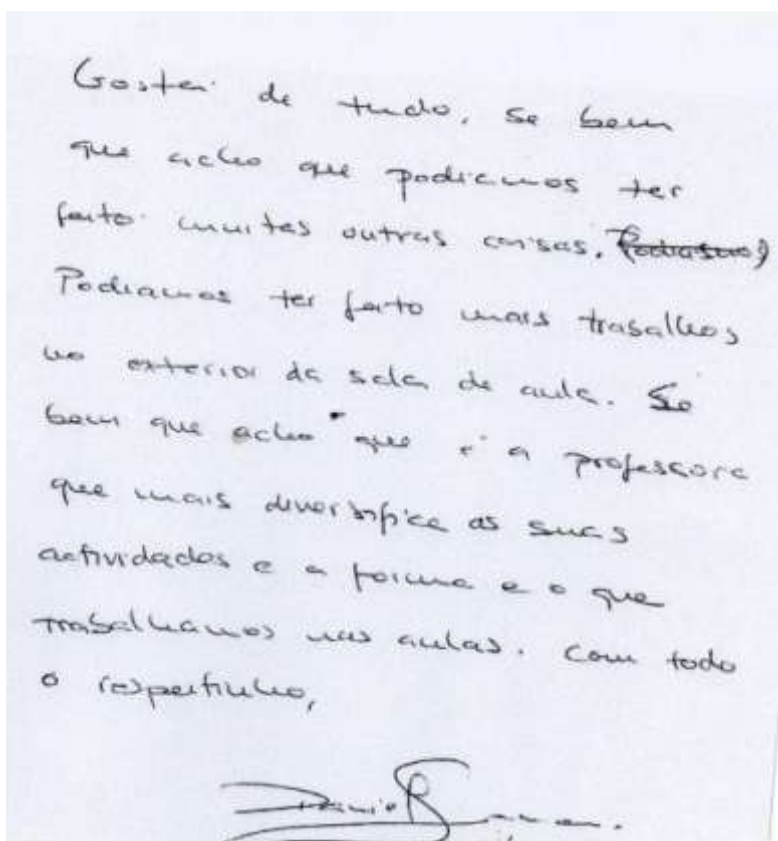 Gostei de tudo, se bem
que acho que podiamos ter
feito muitas outras coisas. Podiamos
Podiamos ter feito mais trabalhos
no exterior da sala de aula. Se
bem que acho que é a professora
que mais diversifica as suas
actividades e a forma e o que
trabalhamos nas aulas. Com todo
o respeitinho,
Daniel